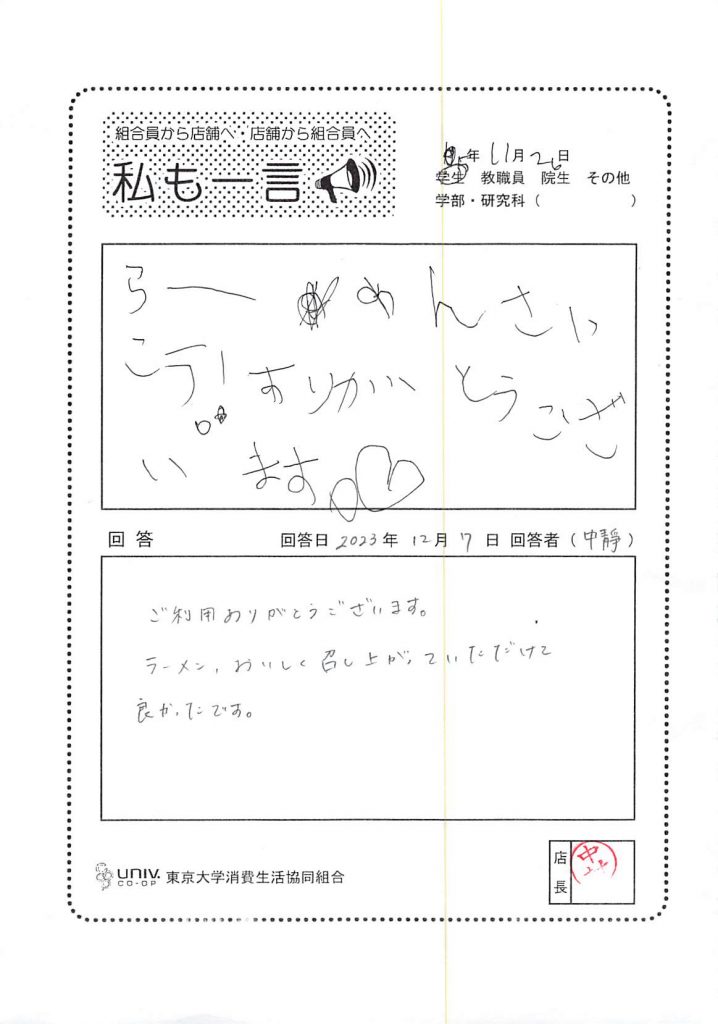 組合員から店舗へ・店舗から組合員へ
私も一言
年 11月26日
学生 教職員 院生 その他
学部・研究科( )
らーめんさい
こう!ありがとうござ
います。
回答 回答日 2023年 12月 7日 回答者(中静)
ご利用ありがとうございます。
ラーメン、おいしく召し上がっていただけて
良かったです。
店長
中
UNIV.
CO-OP
東京大学消費生活協同組合